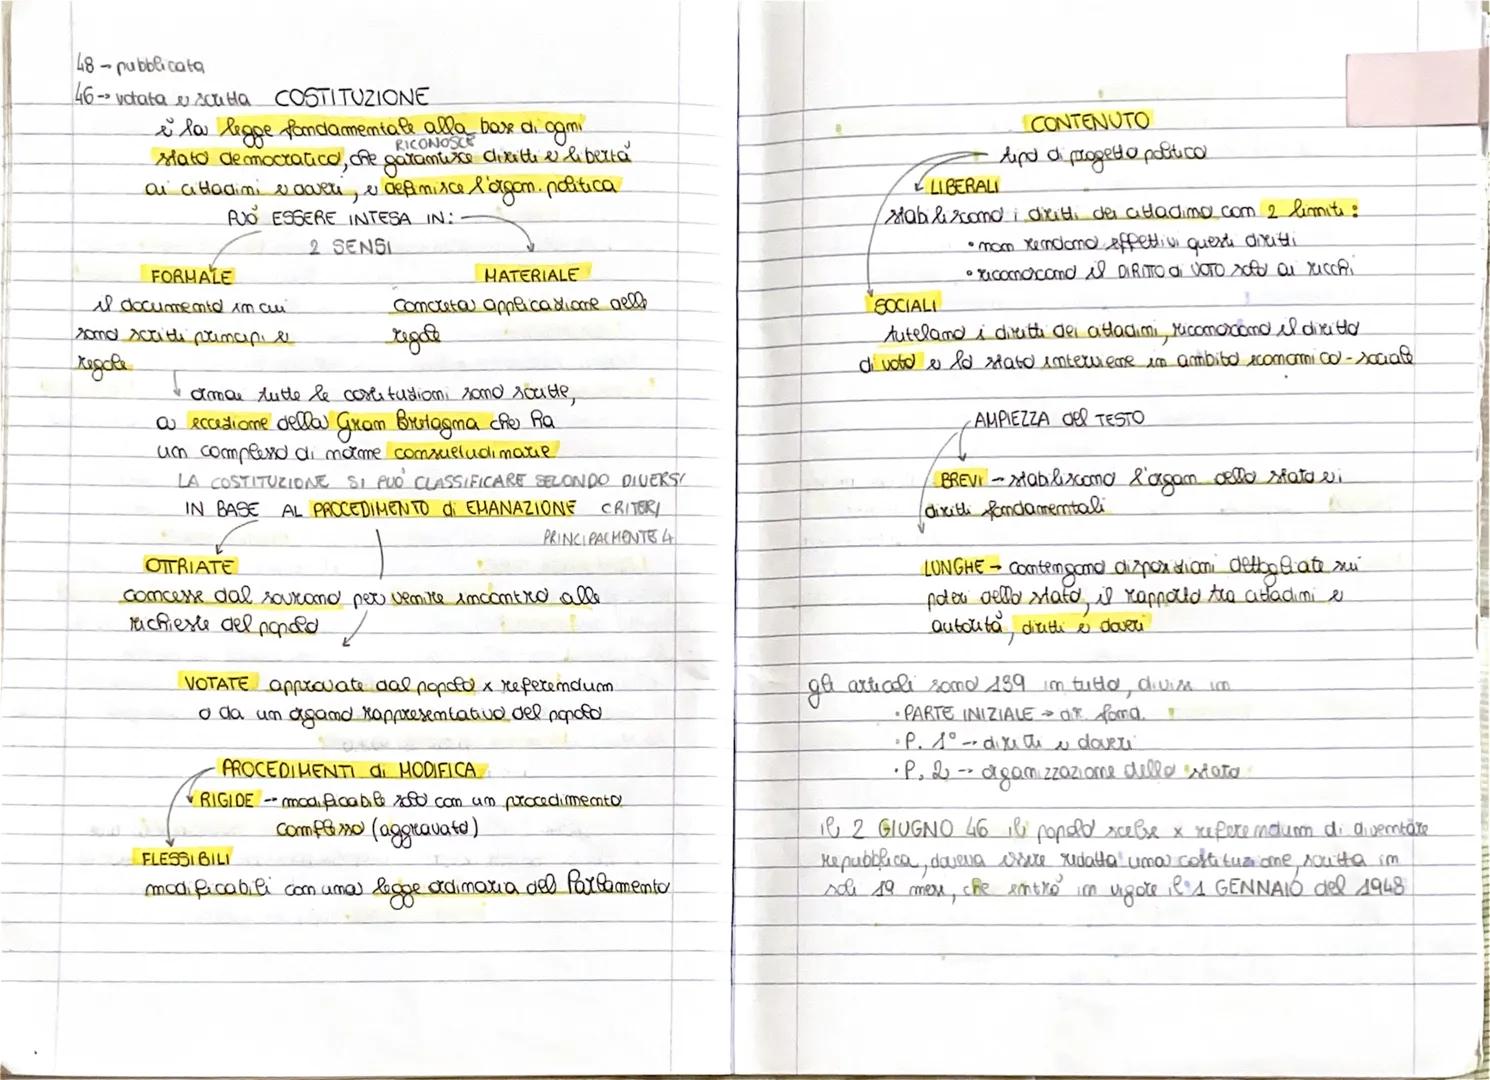 48 → pubblicata
46 → votata e scritta COSTITUZIONE
è la legge fondamentale alla base di ogni
RICONOSCE
stato democratico, che garantisce diritti e libertà
ai cittadini e doveri, e definisce l'organ. politica
PUÒ ESSERE INTESA IN:
2 SENSI
FORMALE MATERIALE
il documento in cui concreta applicazione delle
sono scritti principi e regole
regole
ormai tutte le costituzioni sono scritte,
a eccezione della Gran Bretagna che ha
un complesso di norme consuetudinarie
LA COSTITUZIONE SI PUÒ CLASSIFICARE SECONDO DIVERSI
IN BASE AL PROCEDIMENTO di EMANAZIONE CRITERI
PRINCIPALMENTE 4
OTTRIATE
concesse dal sovrano per venire incontro alle
richieste del popolo
VOTATE approvate dal popolo x referendum
o da un organo rappresentativo del popolo
PROCEDIMENTI di MODIFICA
RIGIDE → modificabile solo con un procedimento
complesso (aggravato)
FLESSIBILI
modificabili con una legge ordinaria del Parlamento
CONTENUTO
tipo di progetto politico
LIBERALI
stabiliscono i diritti dei cittadino con 2 limiti:
• non rendono effettivi questi diritti
• riconoscono il DIRITTO di VOTO solo ai ricchi
SOCIALI
tutelano i diritti dei cittadini, riconoscono il diritto
di voto e lo stato interviene in ambito economico-sociale
AMPIEZZA del TESTO
BREVI → stabiliscono l'organ. dello stato e i
diritti fondamentali
LUNGHE → contengono disposizioni dettagliate sui
poteri dello stato, il rapporto tra cittadini e
autorità, diritti e doveri
gli articoli sono 139 in tutto, divisi in
• PARTE INIZIALE → dir. fond.
• P. 1° → diritti e doveri
• P. 2 → organizzazione dello stato
il 2 GIUGNO 46 il popolo scelse x referendum di diventare
repubblica, doveva essere redatta una costituzione, scritta in
soli 19 mesi, che entrò in vigore il 1 GENNAIO del 1948